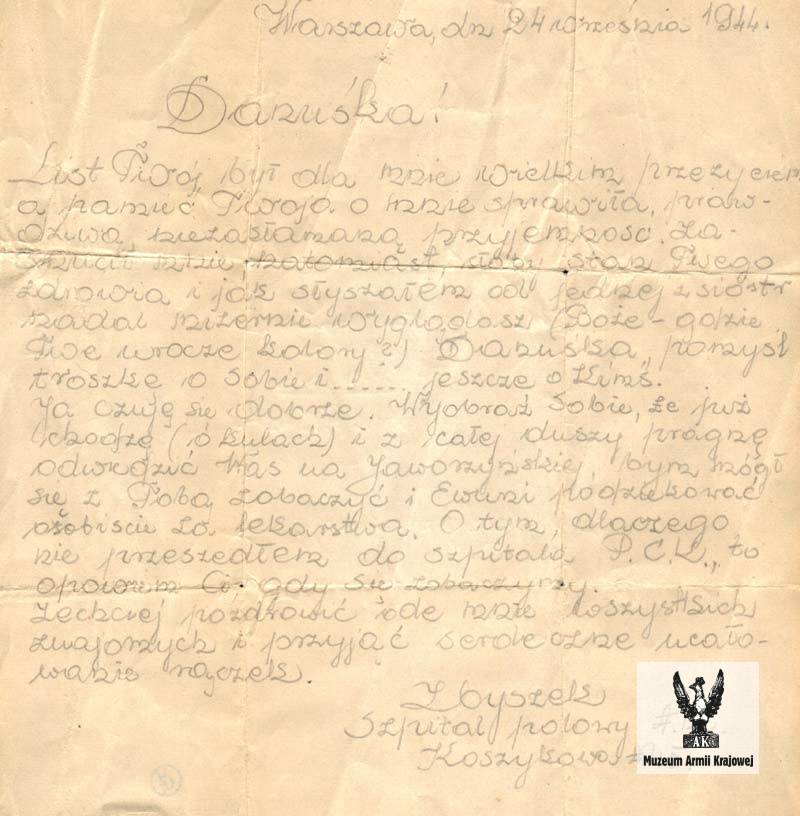 Warszawa, dn 24 września 1944.
Danuśka!
List Twój, był dla mnie wielkim przeżyciem
a pamięć Twoja o mnie sprawiła, praw-
dziwą, niezasłamaną przyjemność. Za-
smucił mnie natomiast, słaby stan Twego
zdrowia i jak słyszałem od jednej z siostr
nadal mizernie wyglądasz (Boże - gdzie
Twe urocze kolory?) Danuśka, pomyśl
troszkę o Sobie i ...... jeszcze o kimś.
Ja czuję się dobrze. Wyobraź Sobie, że już
chodzę (o kulach) i z całej duszy pragnę
odwiedzić Was na Jaworzyńskiej, bym mógł
się z Tobą zobaczyć i Ewuni podziękować
osobiście za lekarstwa. O tym, dlaczego
nie przeszedłem do szpitala P.C.K., to
opowiem Ci, gdy się zobaczymy.
Zechciej pozdrowić ode mnie wszystkich
znajomych i przyjąć serdeczne ucało-
wanie rączek.
Zbyszek
Szpital polowy
Koszykowa
AK
Muzeum Armii Krajowej